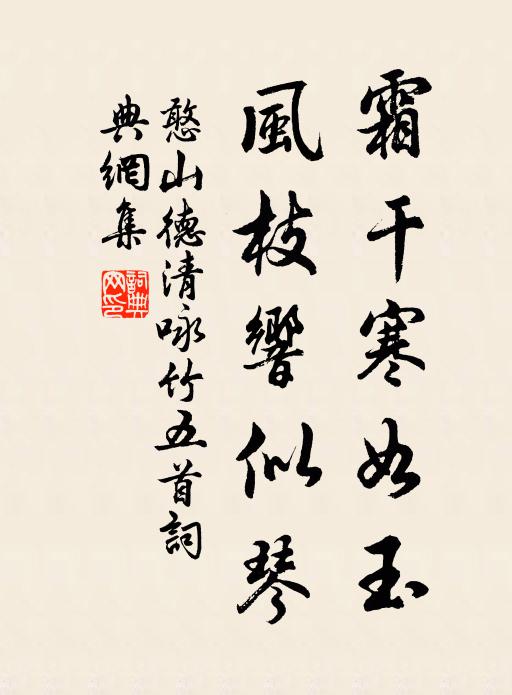 霜干寒如玉
風枝響似琴
憨山德清咏竹五首詞
典網集
詞典
网印